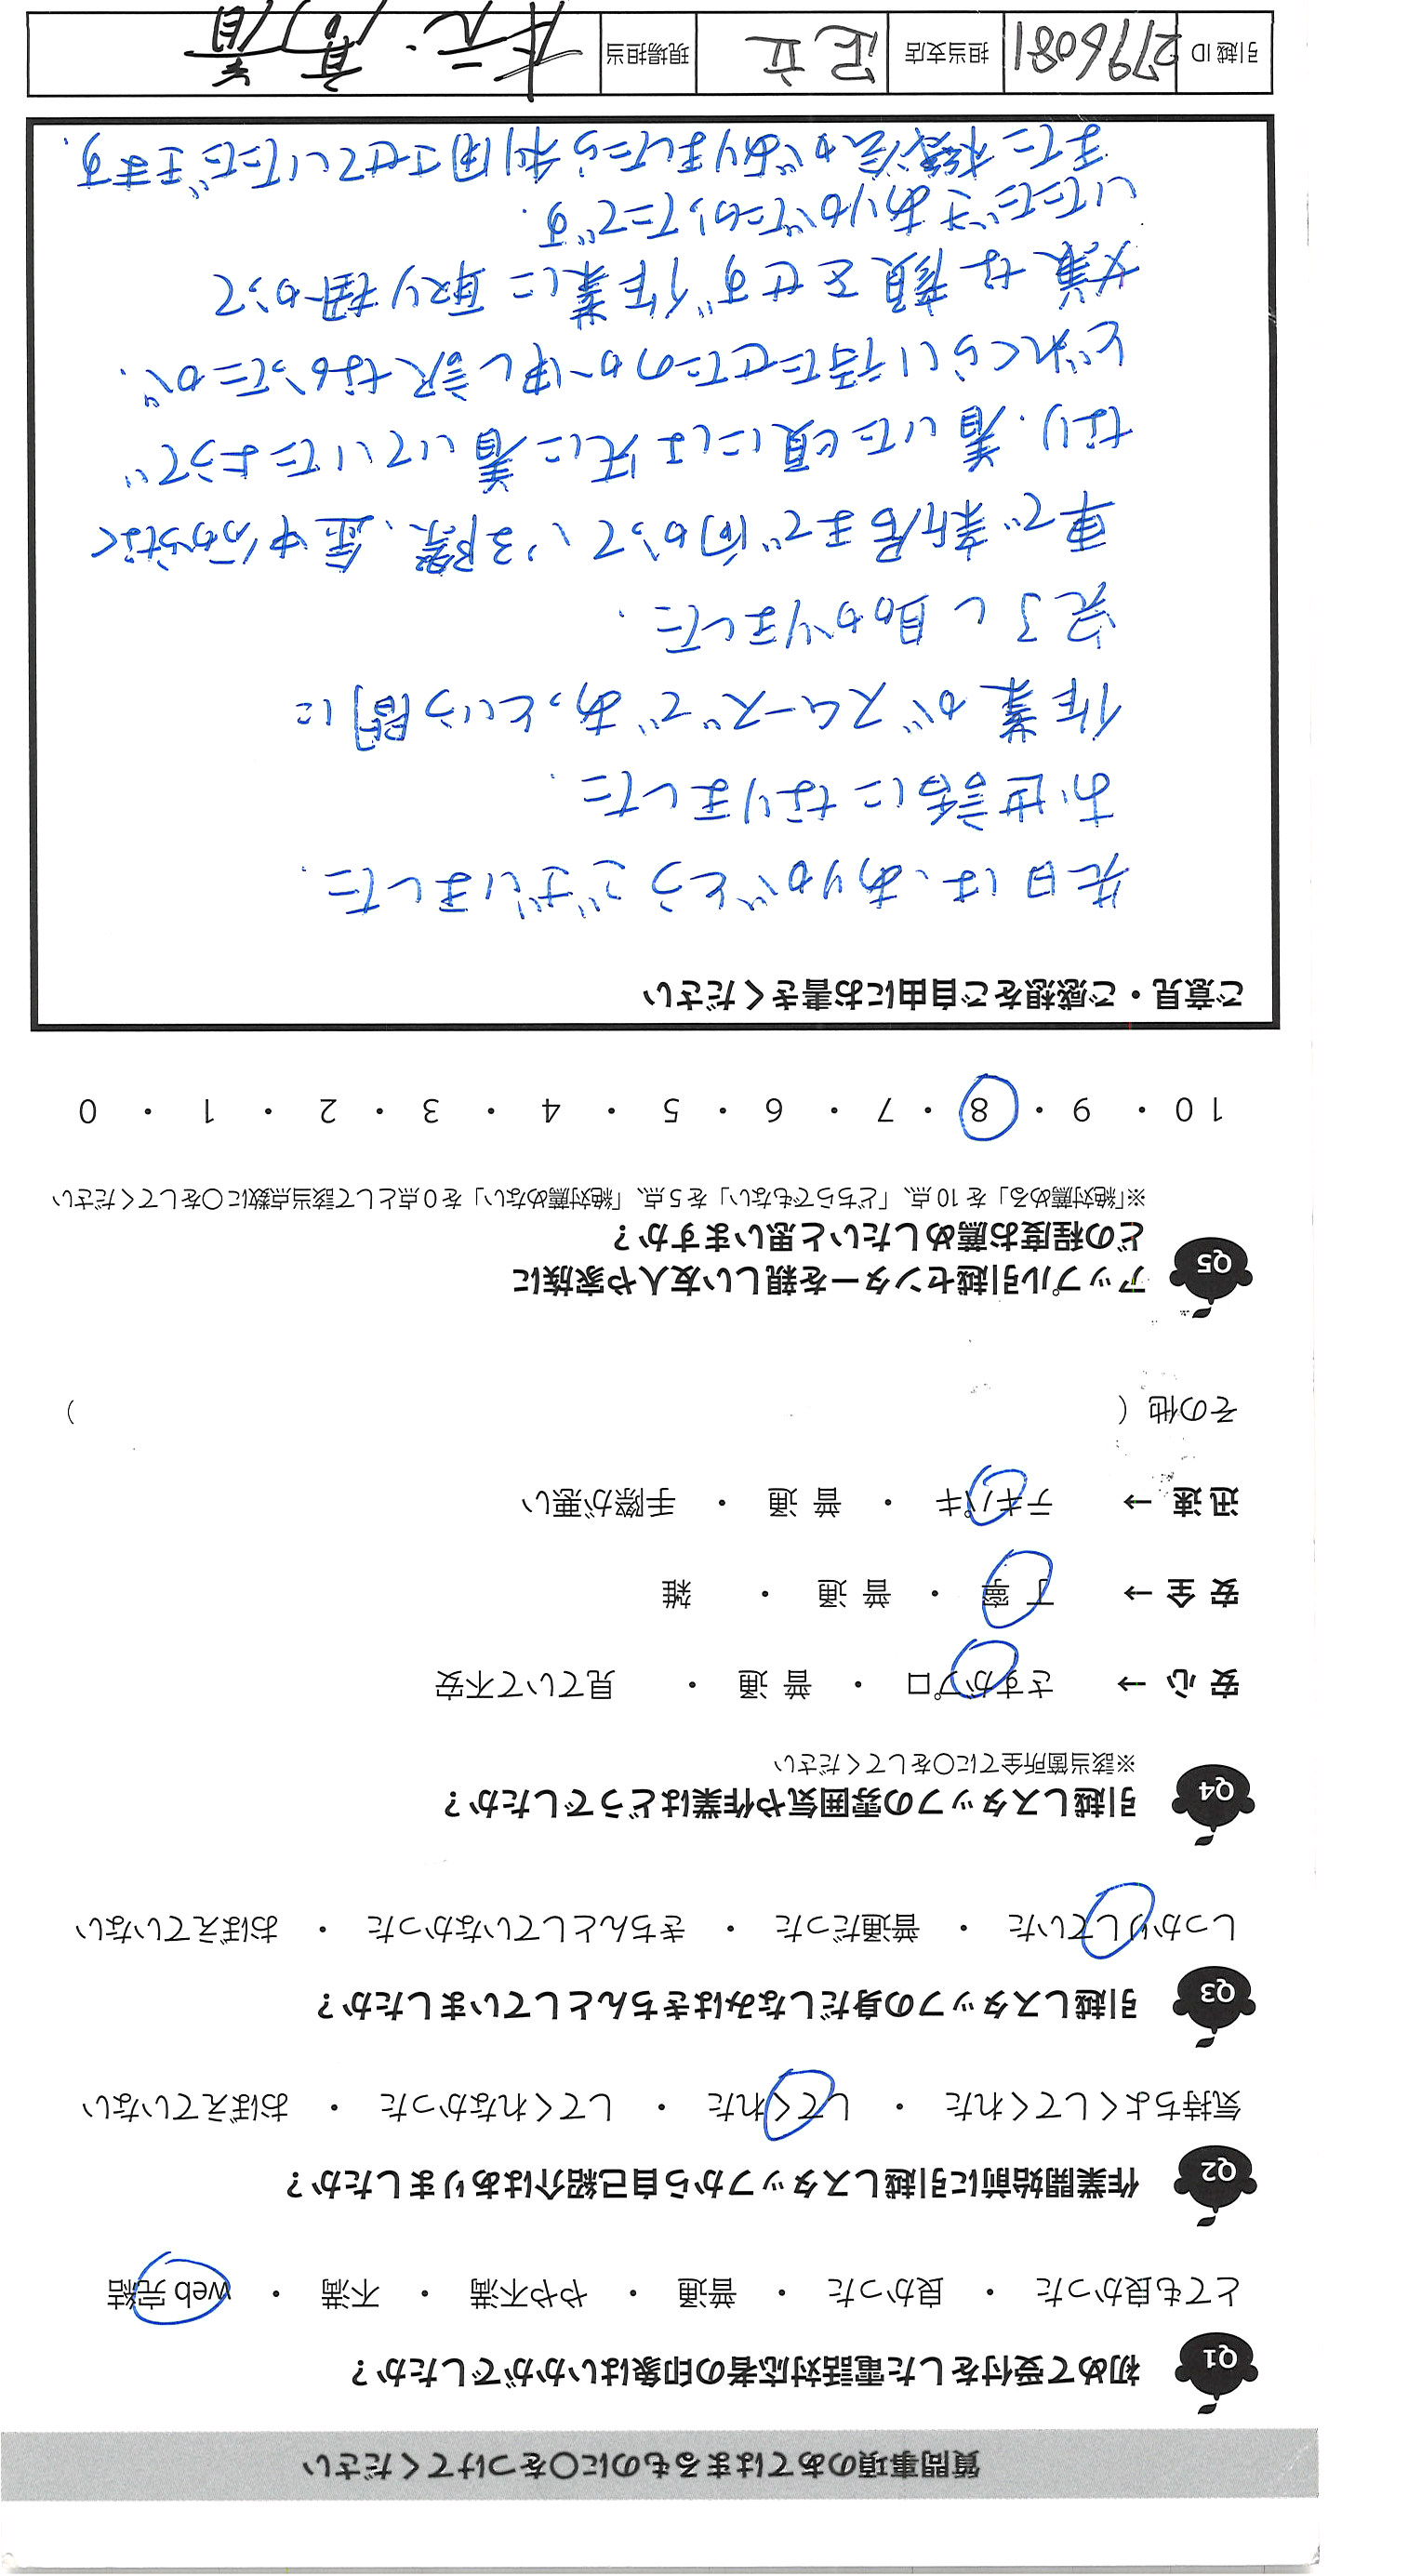 質問事項のあてはまるものに〇をつけてください
Q1 初めて受付をした電話対応者の印象はいかがでしたか？
とても良かった ・ 良かった ・ 普通 ・ やや不満 ・ 不満 ・ web 完結
Q2 作業開始前に引越しスタッフから自己紹介はありましたか？
気持ちよくしてくれた ・ してくれた ・ してくれなかった ・ おぼえていない
Q3 引越しスタッフの身だしなみはきちんとしていましたか？
しっかりしていた ・ 普通だった ・ きちんとしていなかった ・ おぼえていない
Q4 引越しスタッフの雰囲気や作業はどうでしたか？
※該当箇所全てに〇をしてください
安 心 → さすがプロ ・ 普 通 ・ 見ていて不安
安 全 → 丁 寧 ・ 普 通 ・ 雑
迅 速 → テキパキ ・ 普 通 ・ 手際が悪い
その他（ ）
Q5 アップル引越センターを親しい友人や家族に
どの程度お薦めしたいと思いますか？
※「絶対薦める」を 10 点、「どちらでもない」を 5 点、「絶対薦めない」を 0 点として該当点数に〇をしてください
10 ・ 9 ・ 8 ・ 7 ・ 6 ・ 5 ・ 4 ・ 3 ・ 2 ・ 1 ・ 0
ご意見・ご感想をご自由にお書きください
先日は、ありがとうございました.
お世話になりました.
作業がスムーズで あっという間に
完了し助かりました.
車で新居まで向かっている際、途中分からなく
なり. 着いた頃には先に着いていたようで
どれくらい待たせたのか申し訳なかったが、
嫌な顔をせず作業に取り掛かって
いただきありがたかったです.
また機会がありましたら利用させていただきます.
引越 ID 2796081 担当支店 足立 現場担当